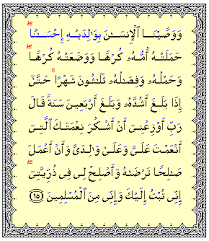 وَوَصَّيْنَا ٱلْإِنسَـٰنَ بِوَٰلِدَيْهِ إِحْسَـٰنًا
حَمَلَتْهُ أُمُّهُۥ كُرْهًا وَوَضَعَتْهُ كُرْهًا
وَحَمْلُهُۥ وَفِصَـٰلُهُۥ ثَلَـٰثُونَ شَهْرًا حَتَّىٰٓ
إِذَا بَلَغَ أَشُدَّهُۥ وَبَلَغَ أَرْبَعِينَ سَنَةً قَالَ
رَبِّ أَوْزِعْنِىٓ أَنْ أَشْكُرَ نِعْمَتَكَ ٱلَّتِىٓ
أَنْعَمْتَ عَلَىَّ وَعَلَىٰ وَٰلِدَىَّ وَأَنْ أَعْمَلَ
صَـٰلِحًا تَرْضَىٰهُ وَأَصْلِحْ لِى فِى ذُرِّيَّتِىٓ
إِنِّى تُبْتُ إِلَيْكَ وَإِنِّى مِنَ ٱلْمُسْلِمِينَ ١٥